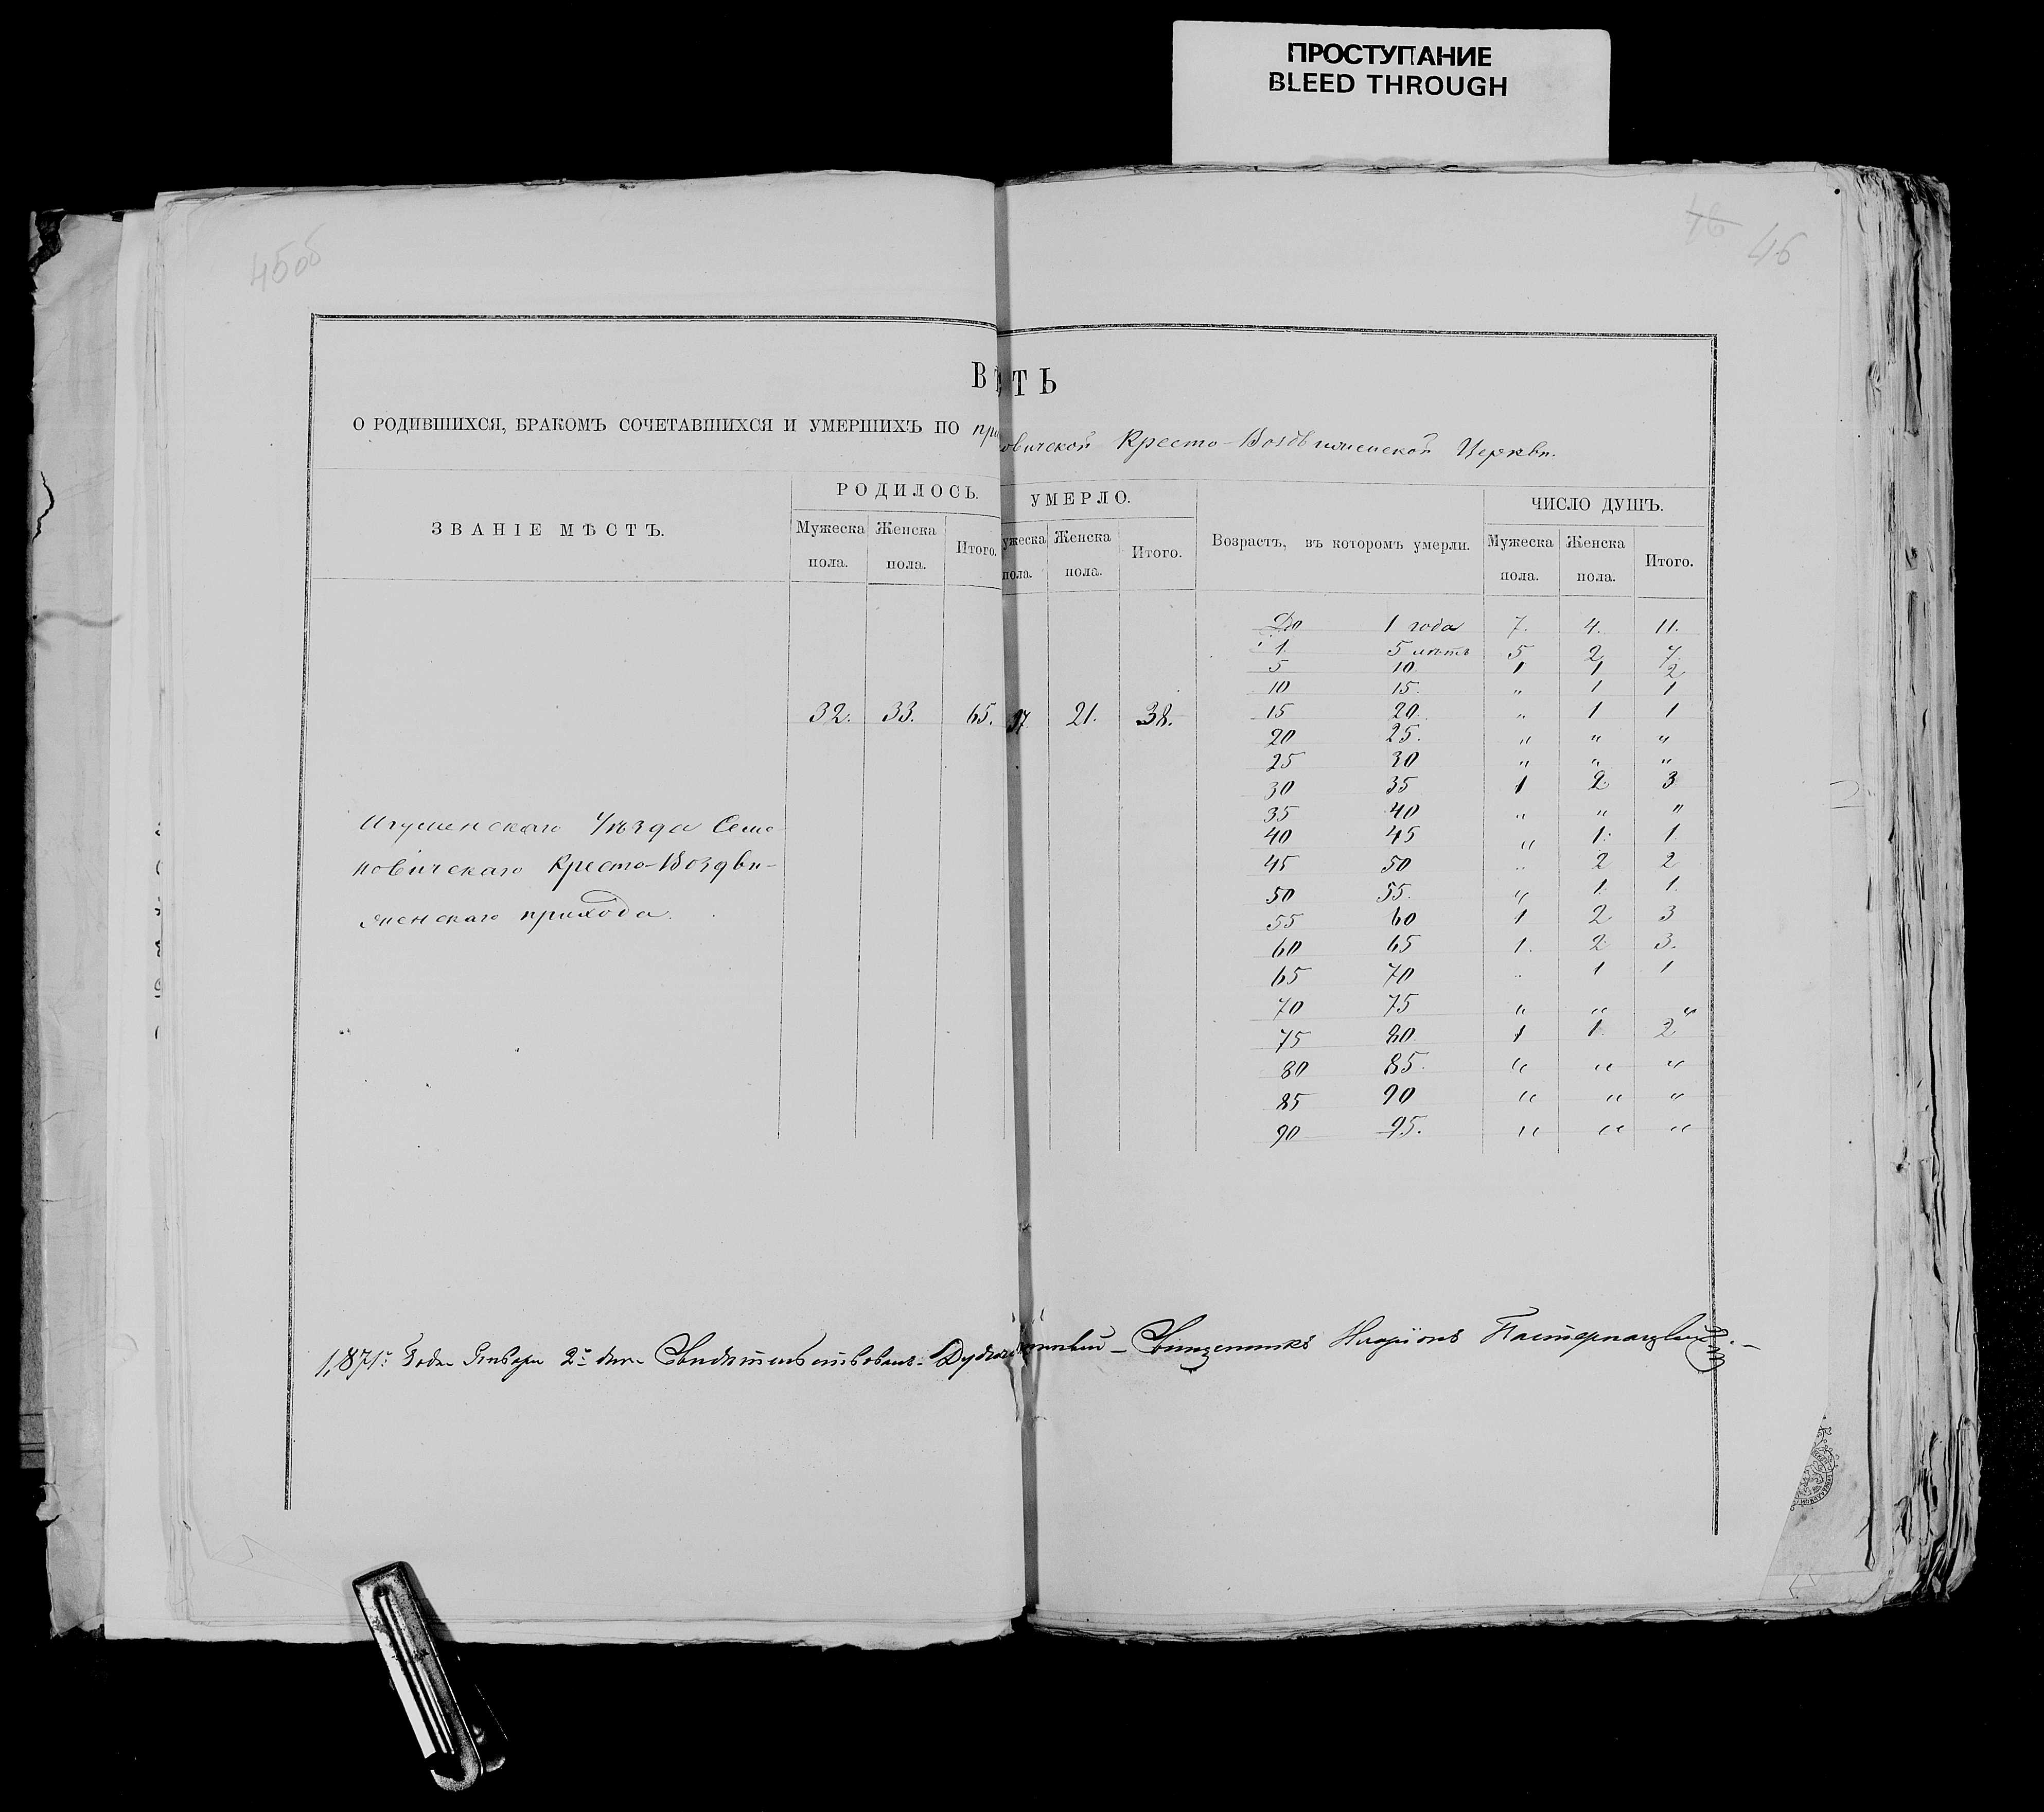 ПРОСТУПАНИЕ
BLEED THROUGH
45об
46
46
В ТЬ
О РОДИВШИХСЯ, БРАКОМЪ СОЧЕТАВШИХСЯ И УМЕРШИХЪ ПО при овичской Кресто-Воздвиженской Церкви.
ЗВАНІЕ МѢСТЪ.
РОДИЛОСЬ.
Мужеска пола.
Женска пола.
Итого.
УМЕРЛО.
ужеска пола.
Женска пола.
Итого.
Возрастъ, въ которомъ умерли.
ЧИСЛО ДУШЪ.
Мужеска пола.
Женска пола.
Итого.
Игуменскаго Уѣзда Семе
новичскаго Кресто-Воздви-
женскаго прихода.
32. 33. 65. 17. 21. 38.
До 1 года 7. 4. 11.
1 5 лѣтъ 5 2 7
5 10 1 1 2
10 15 " 1 1
15 20 " 1 1
20 25. " " "
25 30 " " "
30 35 1 2 3
35 40 " " "
40 45 " 1. 1.
45 50 " 2 2
50 55. " 1. 1.
55 60 1 2 3
60 65 1. 2. 3.
65 70 " 1 1
70 75 " " "
75 80 1 1. 2
80 85. " " "
85 90 " " "
90 95. " " "
1871: Года Января 2 дня Свидѣтельствовалъ Священникъ Иларіонъ